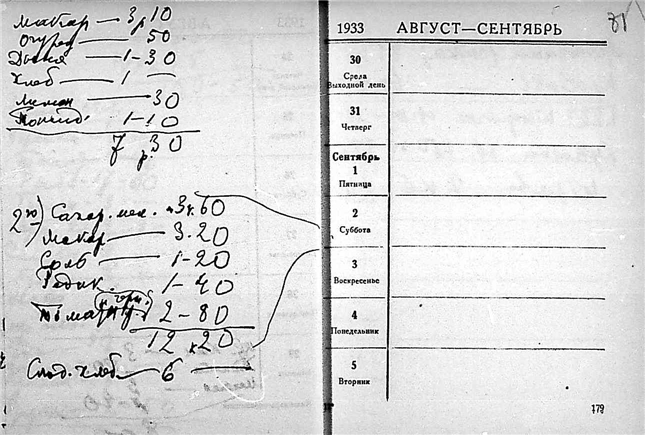 Макар — 3р 10
Огурец 50
Дыня — 1-30
Хлеб — 1 —
Лимон — 30
Помид. 1-10
7 р. 30
2го) Сахар. мел. 3к.60
Макар — 3.20
Соль — 1-20
Редик. 1-40
Томат 2-80
12 к 20
Слад. хлеб — 6 —
1933 АВГУСТ—СЕНТЯБРЬ
30
Среда
Выходной день
31
Четверг
Сентябрь
1
Пятница
2
Суббота
3
Воскресенье
4
Понедельник
5
Вторник
179